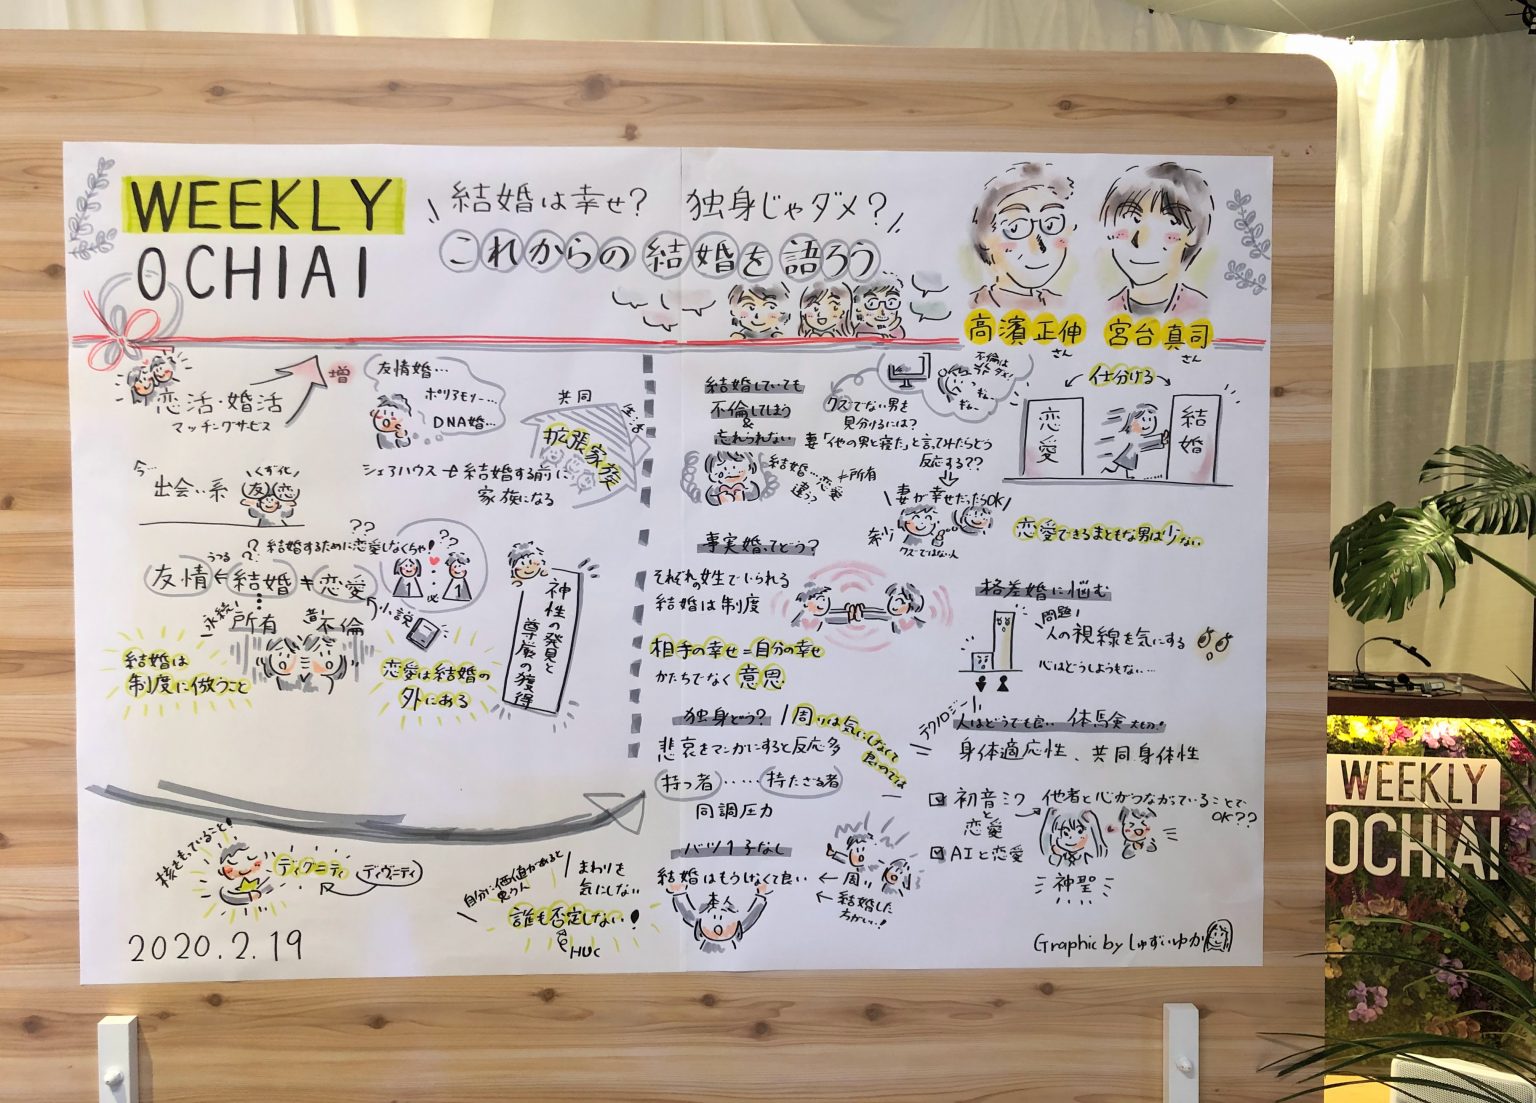 WEEKLY
OCHIAI
結婚は幸せ? 独身じゃダメ?
これからの結婚を語ろう
高濱正伸さん
宮台真司さん
恋活・婚活
マッチングサービス
増
友情婚…
ポリアモリー…
DNA婚…
共同
拡張家族
シェアハウス
結婚する前に
家族になる
今…
出会い系
くず化
友 恋
??
結婚するために恋愛しなくちゃ!
??
うつる
?
友情 ← 結婚 ≠ 恋愛
永続!
所有
不倫
小説
1 vs 1
結婚は
制度に倣うこと
恋愛は結婚の
外にある
神性の発見と
尊厳の獲得
核をもっていること!
ディグニティ
ディヴィニティ
自分に価値があると
思う人
まわりを
気にしない
誰も否定しない!
HUC
2020.2.19
結婚していても
不倫してしまう
&
忘れられない
結婚…恋愛
違う?
≠所有
クズでない男を
見分けるには?
不倫は
妻「他の男と寝た」と言ってれたらどう
反応する??
妻が幸せだったらOK
クズではない人
仕分ける
恋愛
結婚
恋愛できるまともな男は少ない
事実婚ってどう?
それぞれの姓でいられる
結婚は制度
相手の幸せ=自分の幸せ
かたちでなく意思
格差婚に悩む
問題!
人の視線を気にする
心はどうしようもない…
独身どう?
周りは気にしなくて
良いのでは
悲哀をマンガにすると反応多
持つ者……持たざる者
同調圧力
テクノロジー
人はどうでも良い 体験大切!
= 身体適応性、共同身体性
初音ミク
と
恋愛
AIと恋愛
他者と心がつながっていることで
OK??
神聖
バツ1子なし
結婚はもうしなくて良い
本人
← 周り
← 結婚した
方がいい!
Graphic by しゅずいゆか
WEEKLY
OCHIAI